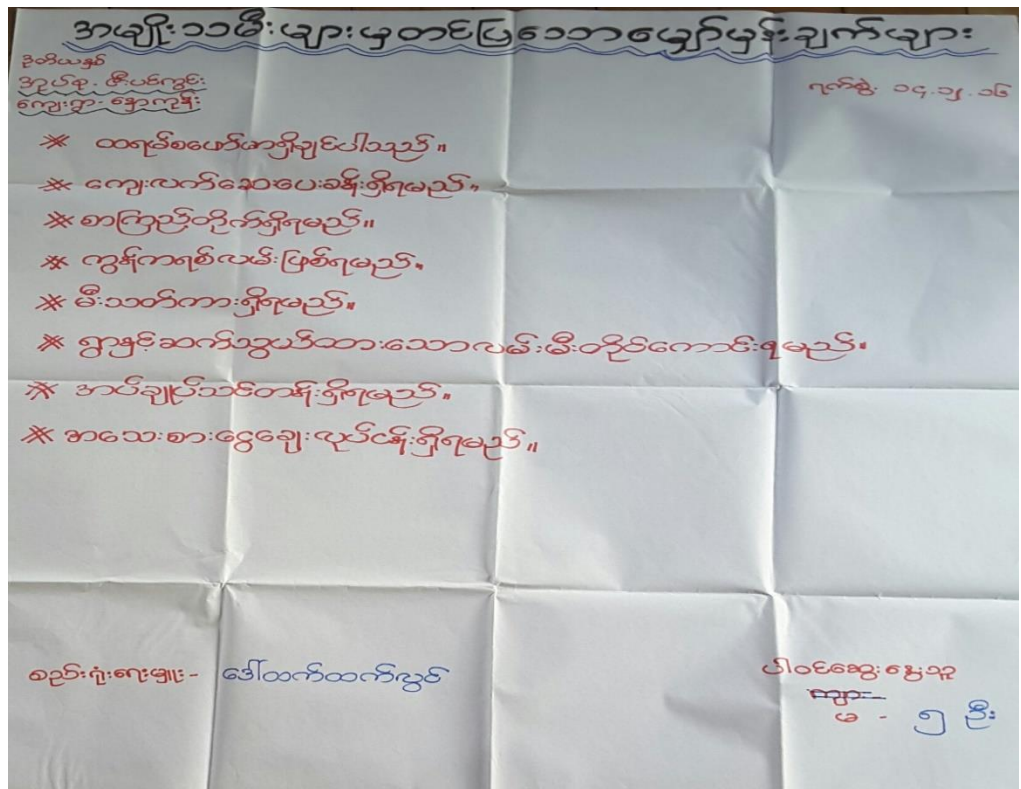 အမျိုးသမီးများမှတင်ပြသောမျှော်မှန်းချက်များ
ဒုတိယနှစ်
အုပ်စု - ဇီးပင်ကွင်း
ကျေးရွာ - နှောကုန်း
ရက်စွဲ - ၁၄.၁၂.၁၆
※ ထရမ်စဖော်မာရှိချင်ပါသည်။
※ ကျေးလက်ဆေးပေးခန်းရှိရမည်။
※ စာကြည့်တိုက်ရှိရမည်။
※ ကွန်ကရစ်လမ်းဖြစ်ရမည်။
※ မီးသတ်ကားရှိရမည်။
※ ရွာနှင့်ဆက်သွယ်ထားသောလမ်းမီးတိုင်ကောင်းရမည်။
※ အပ်ချုပ်သင်တန်းရှိရမည်။
※ အသေးစားငွေချေးလုပ်ငန်းရှိရမည်။
စည်းရုံးရေးမှူး - ဒေါ်ထက်ထက်လွင်
ပါဝင်ဆွေးနွေးသူ
ကျား -
မ - ၅ ဦး